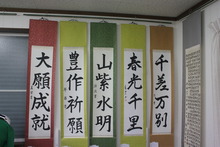 千差万別
春光千里
山紫水明
豊作祈願
大願成就